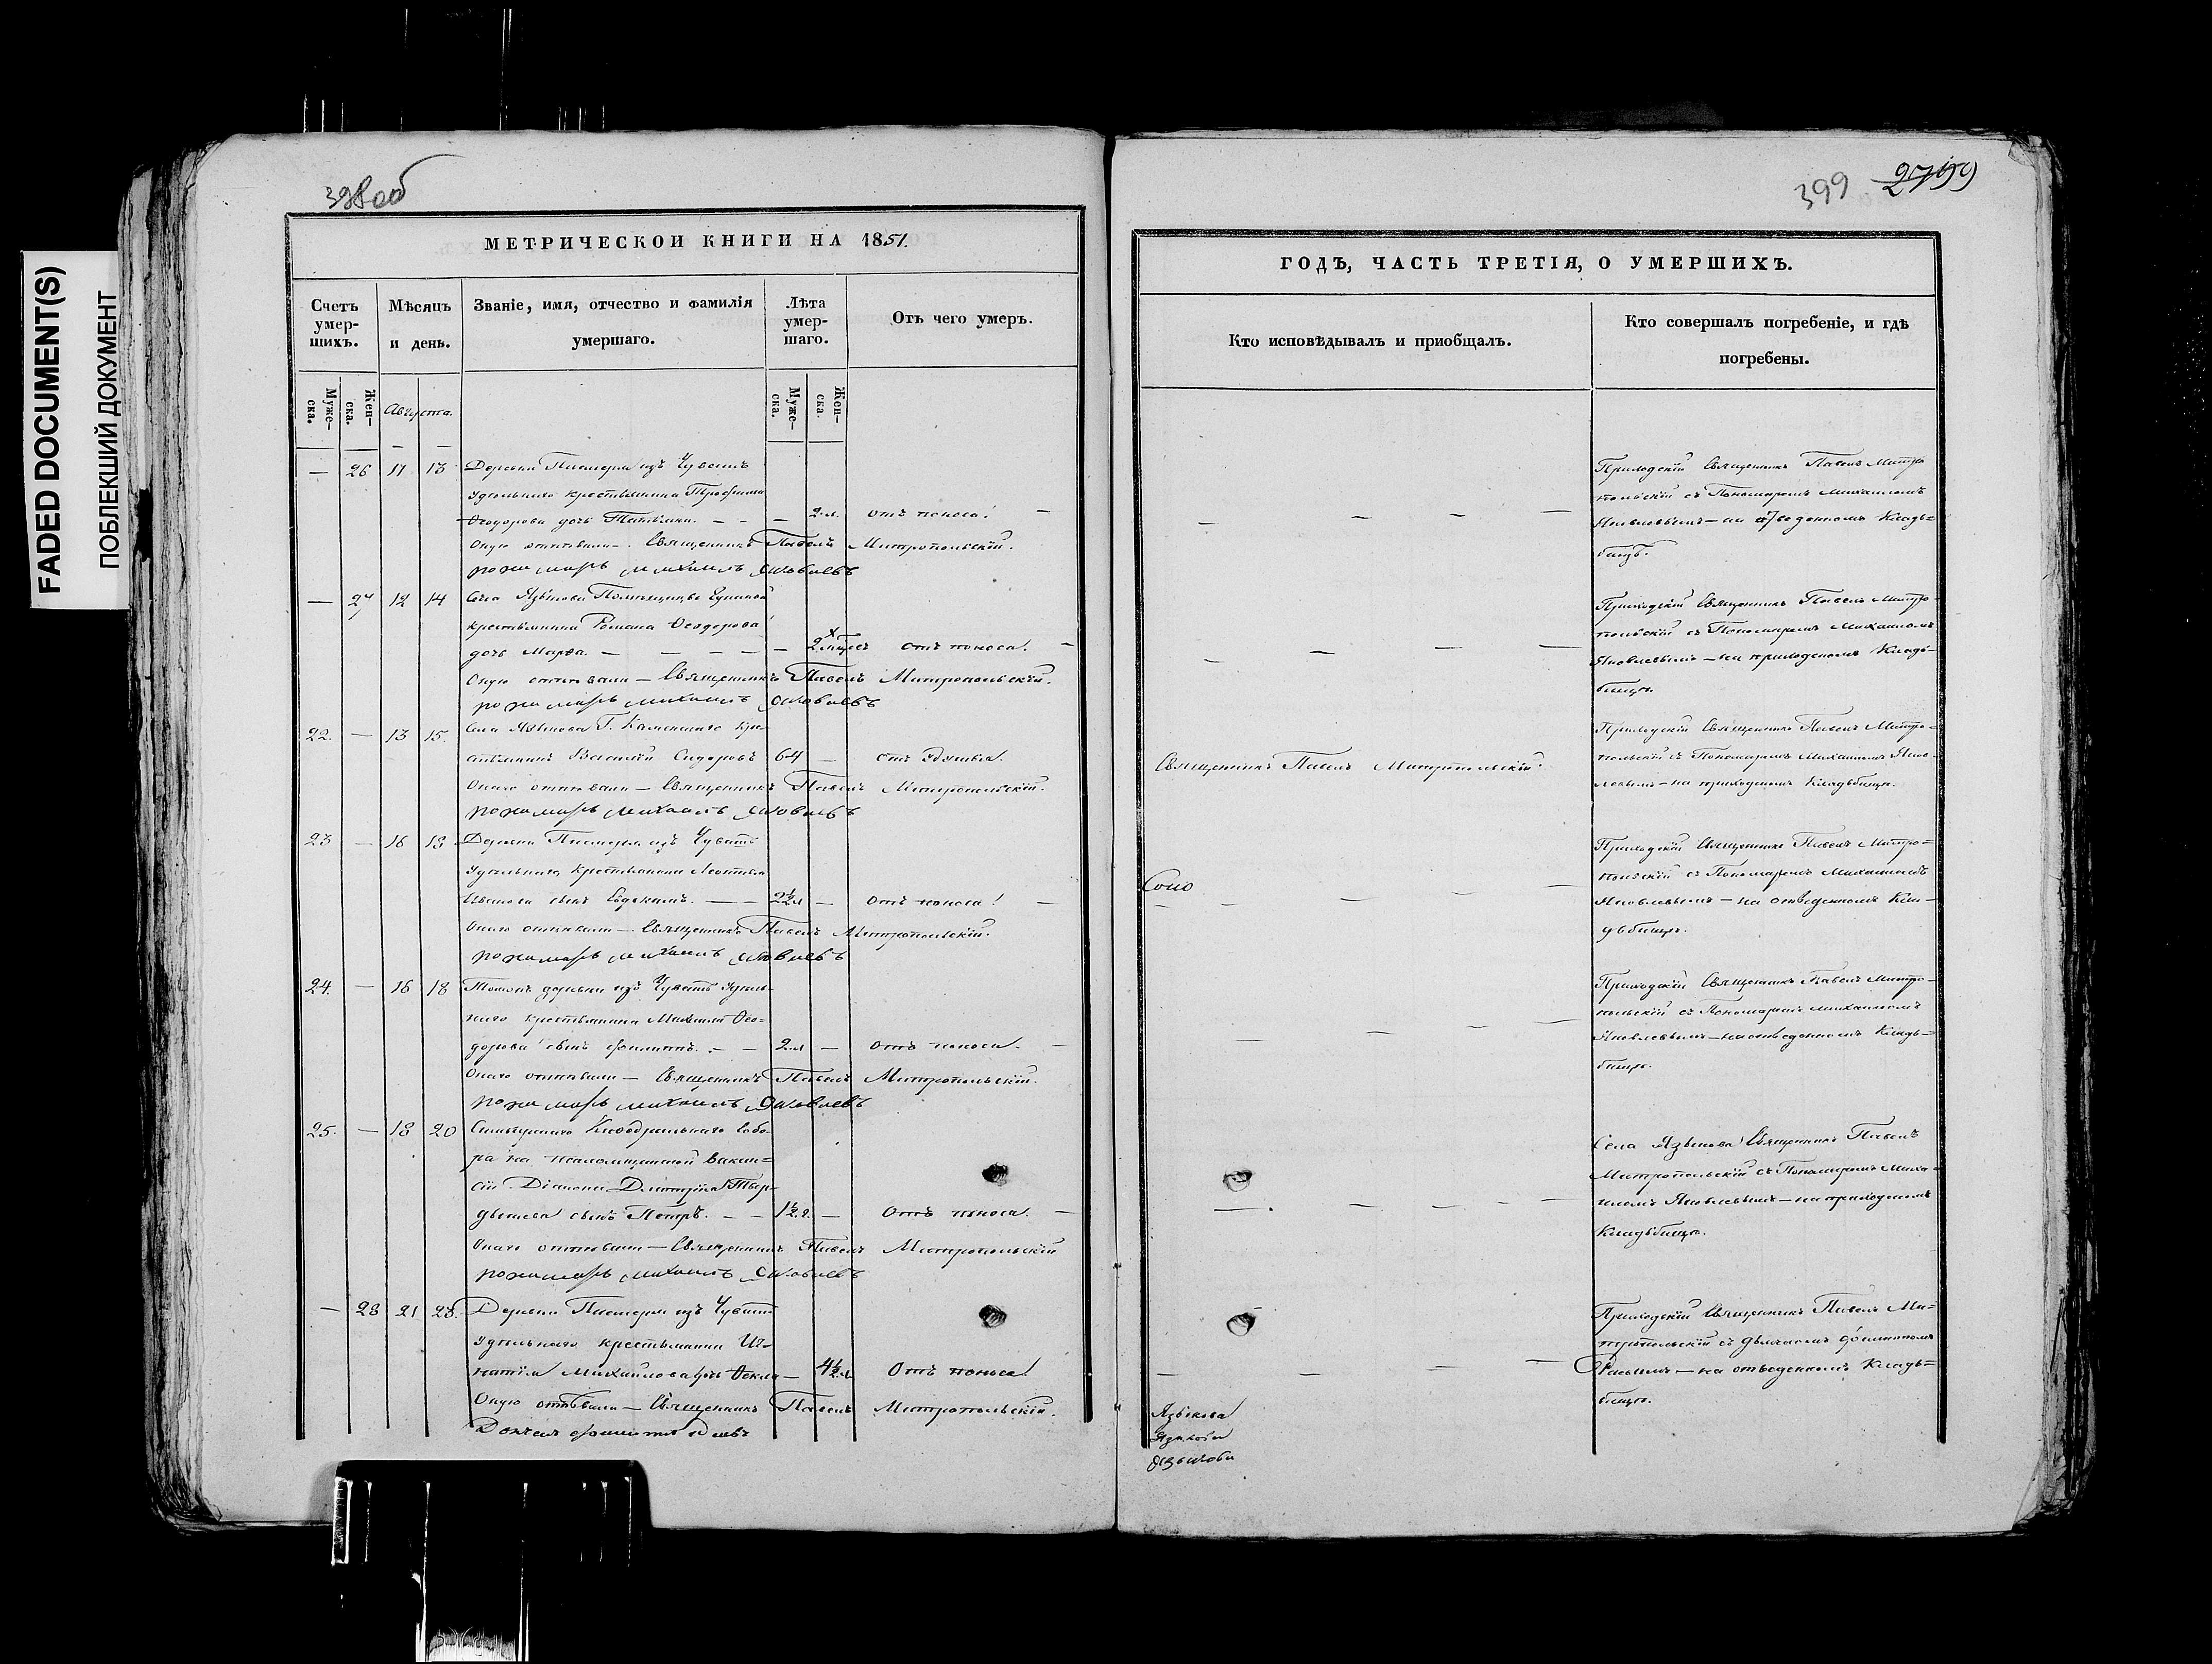 FADED DOCUMENT(S)
ПОБЛЕКШИЙ ДОКУМЕНТ
398об
МЕТРИЧЕСКОИ КНИГИ НА 1851.
Счетъ умер-шихъ.
Мѣсяцъ и день.
Званіе, имя, отчество и фамилія умершаго.
Лѣта умер-шаго.
Отъ чего умеръ.
Муже-ска.
Жен-ска.
Августа.
Муже-ска.
Жен-ска.
— 26 11 13 Деревни изъ Чувашъ
удѣльнаго крестьянина Трофима
Ѳеодорова дочь Татьяна. — 2 л. отъ поноса. —
Оную отпѣвали — Священникъ Павелъ Митропольскій.
пономарь михаилъ яковлевъ
— 27 12 14 Села Языкова Помѣщицы
крестьянина Романа Ѳеодорова
дочь Марѳа. — 2х мѣсяц отъ поноса. —
Оную отпѣвали — Священникъ Павелъ Митропольскій.
пономарь михаилъ яковлевъ
22. — 13 15. Села Языкова Г. Каменскаго кре-
стьянинъ Василій Сидоровъ 64 — отъ удушья.
Онаго отпѣвали — Священникъ Павелъ Митропольскій.
пономарь михаилъ яковлевъ
23 — 16 18 Деревни изъ Чувашъ
удѣльнаго крестьянина Леонтья
Иванова сынъ Евдокимъ. — 2½ л — отъ поноса! —
Онаго отпѣвали — Священникъ Павелъ Митропольскій.
пономарь михаилъ яковлевъ
24. — 16 18 Тойже деревни изъ Чувашъ удѣль-
наго крестьянина Михаила Ѳео-
дорова сынъ Филиппъ. — 2 л — отъ поноса. —
Онаго отпѣвали — Священникъ Павелъ Митропольскій.
пономарь михаилъ яковлевъ
25. — 18 20 Симбирскаго Каѳедральнаго Собо-
ра на псаломщицкой вакан=
сіи Діакона Дмитрія Твер-
дышева сынъ Петръ. — 1½ г. — Отъ поноса. —
Онаго отпѣвали — Священникъ Павелъ Митропольскій
пономарь михаилъ яковлевъ
— 28 21 23. Деревни изъ Чувашъ
удѣльнаго крестьянина Иг-
натія Михайлова дочь Ѳекла — 4½ л Отъ поноса!
Оную отпѣвали — Священникъ Павелъ Митропольскій.
399 2799
ГОДЪ, ЧАСТЬ ТРЕТІЯ, О УМЕРШИХЪ.
Кто исповѣдывалъ и приобщалъ.
Кто совершалъ погребеніе, и гдѣ погребены.
Приходскій Священникъ Павелъ Митро
польскій съ Пономаремъ михаиломъ
Яковлевымъ — на отведенномъ Кладъ=
бищѣ.
Приходскій Священникъ Павелъ Митро-
польскій съ Пономаремъ Михаиломъ
Яковлевымъ — на приходскомъ Кладъ-
бищѣ.
Священникъ Павелъ Митропольскій.
Приходскій Священникъ Павелъ Митро-
польскій съ Пономаремъ Михаиломъ Яков-
левымъ — на приходскомъ Кладъбищѣ.
Приходскій Священникъ Павелъ Митро=
польскій съ Пономаремъ Михаиломъ
Яковлевымъ — на отведенномъ Кла-
дъбищѣ.
Приходскій Священникъ Павелъ Митро-
польскій съ Пономаремъ михаиломъ
Яковлевымъ — на отведенномъ Кладъ=
бищѣ.
Села Языкова Священникъ Павелъ
Митропольскій съ Пономаремъ Миха-
иломъ Яковлевымъ — на приходскомъ
Кладъбищѣ.
Приходскій Священникъ Павелъ Ми=
тропольскій съ дьячкомъ Филиппомъ
— на отведенномъ Кладъ=
бищѣ.
Языкова
Языкова
Языкова